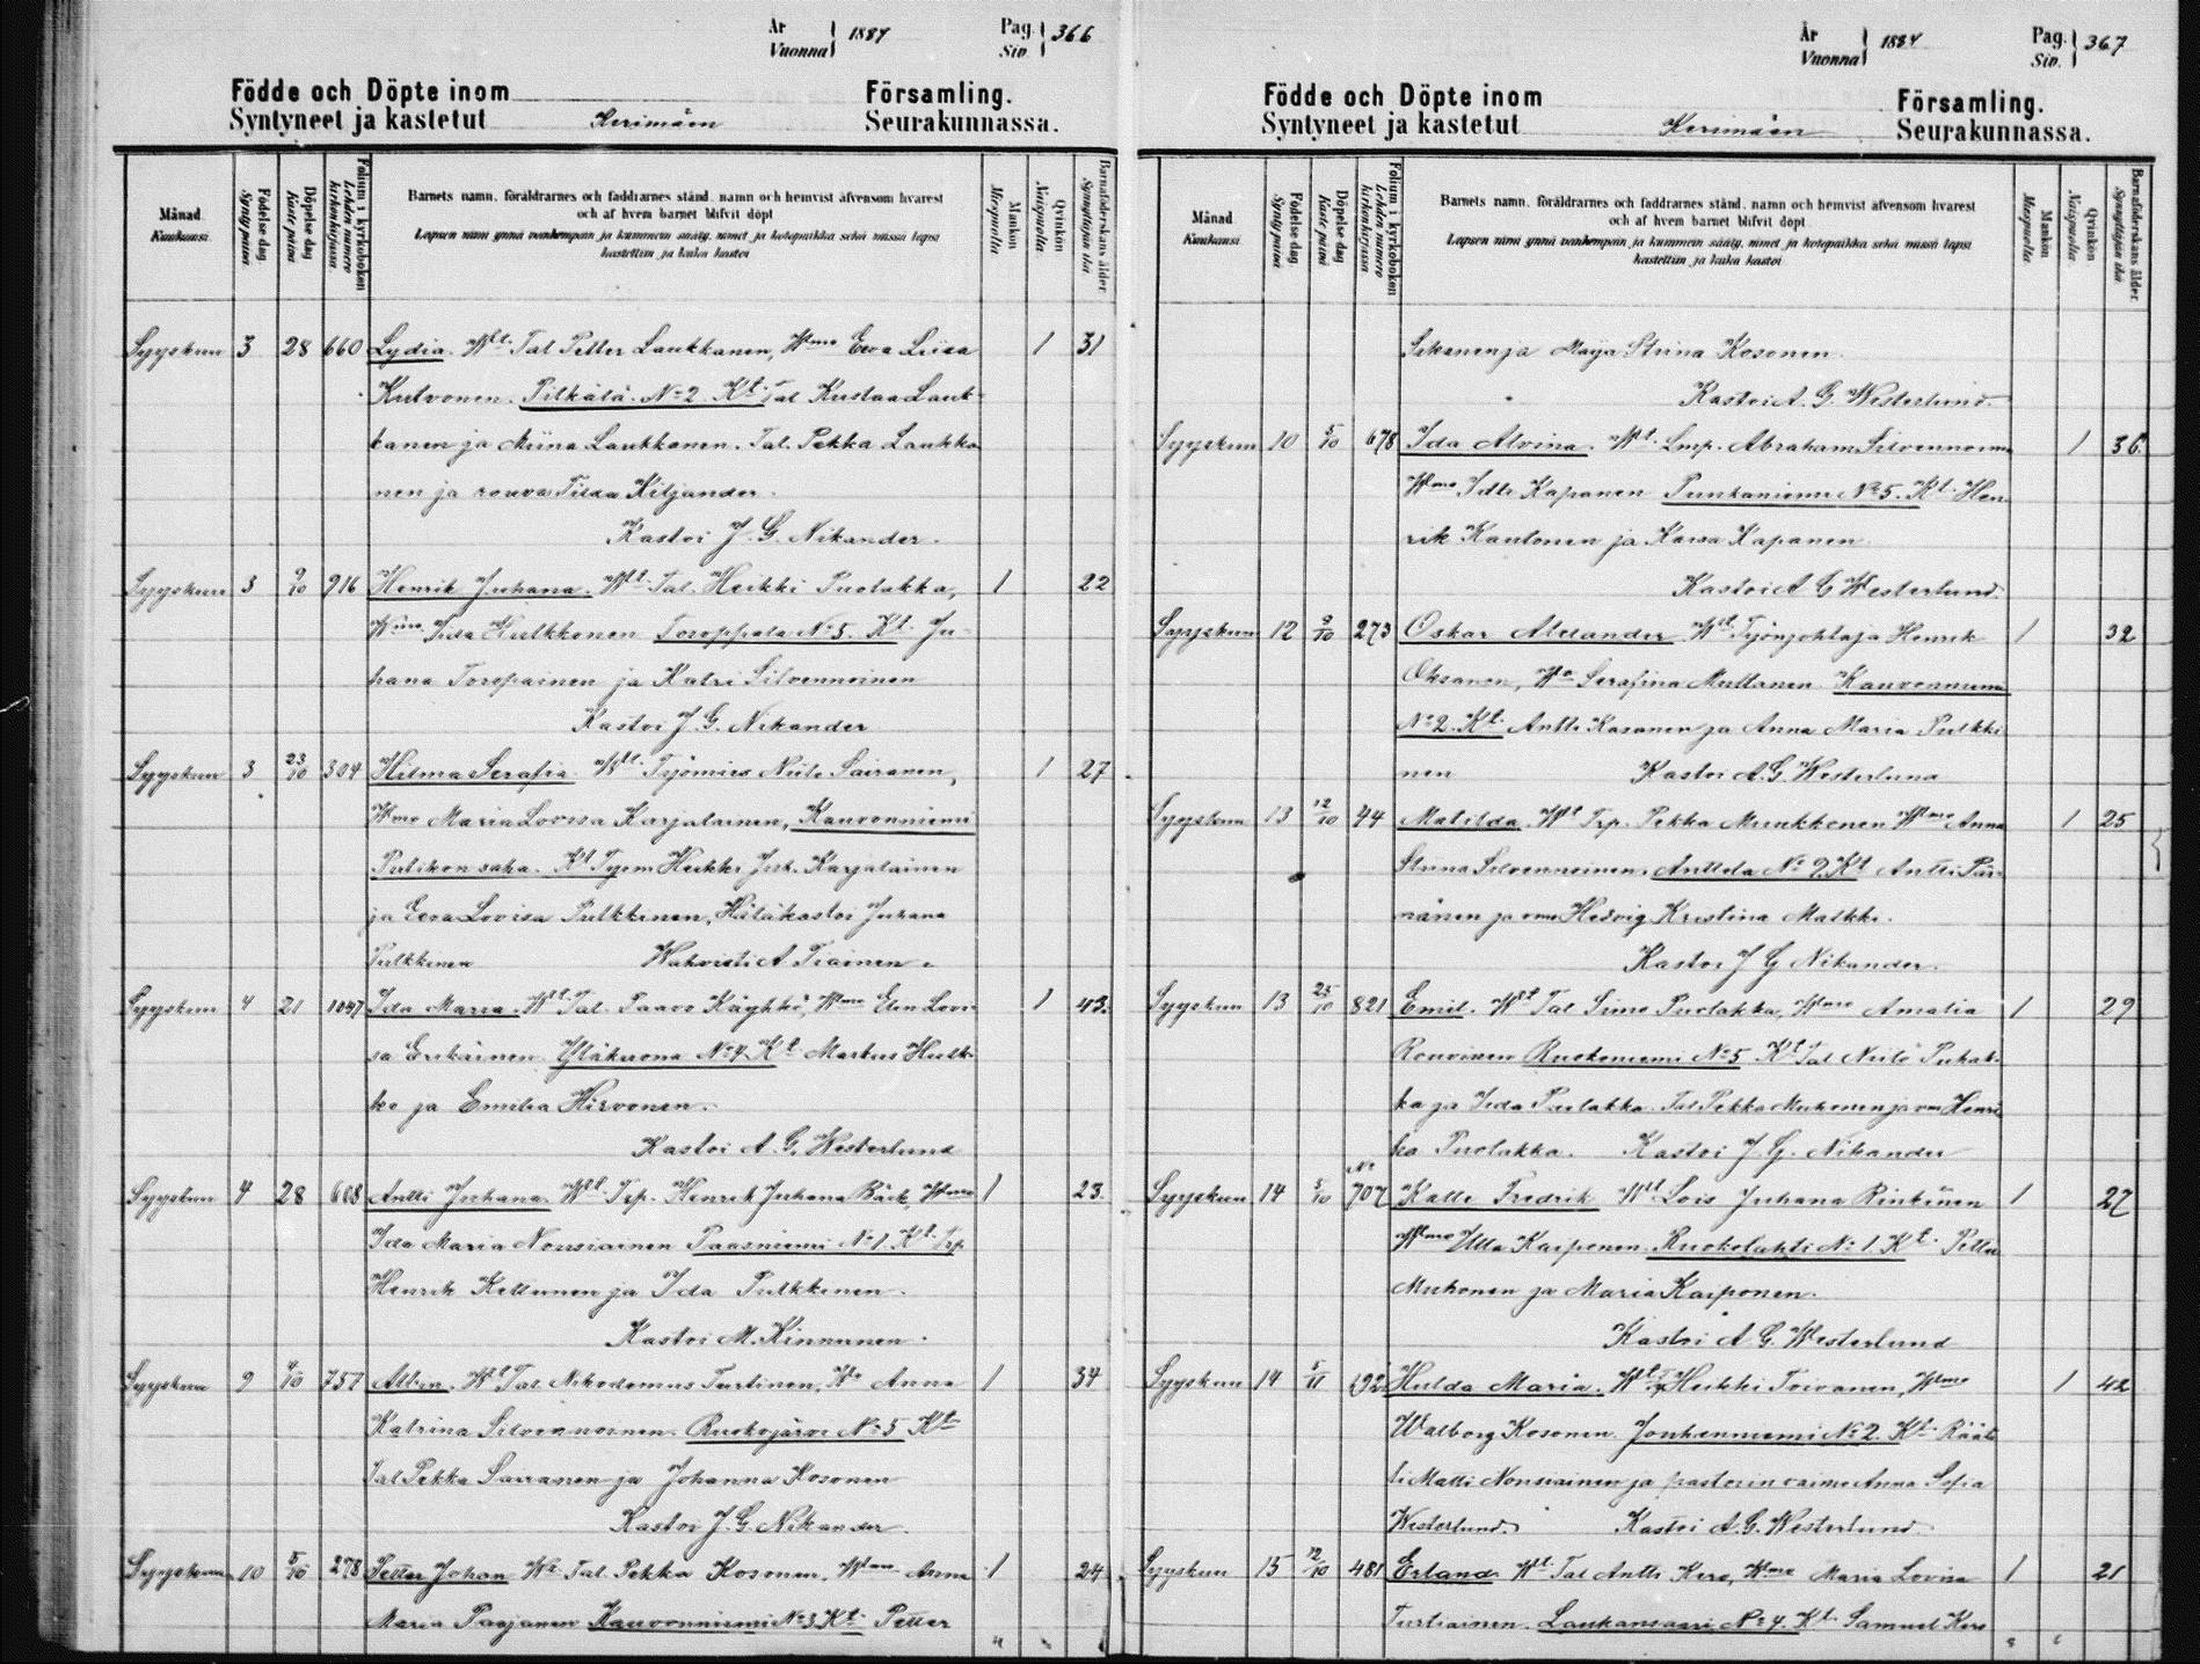 År
Vuonna
1884
Pag.
Siv.
366
Födde och Döpte inom Församling.
Syntyneet ja kastetut Kerimäen Seurakunnassa.
Månad
Kuukausi
Födelse dag
Synty päivä
Döpelse dag
Kaste päivä
Folium i kyrkoboken
Lehden numero kirkonkirjassa
Barnets namn, föräldrarnes och faddrarnes stånd, namn och hemvist äfvensom hvarest
och af hvem barnet blifvit döpt
Lapsen nimi ynnä vanhempain ja kummein sääty, nimet ja kotopaikka sekä missä lapsi
kastettiin ja kuka kastoi
Mankön
Miespuolta
Qvinkön
Naispuolta
Barnaföderskans ålder
Synnyttäjän ikä
Syyskuu 3 28 660 Lydia. Wt. Tal. Petter Laukkanen, Wmo Eeva Liisa 1 31
Kutvonen. Pilkälä. No 2. Kt. Tal Kustaa Lauk-
kanen ja Miina Laukkanen. Tal. Pekka Laukka
nen ja rouva Tilda Kiljander.
Kastoi J. G. Nikander.
Syyskuu 3 9/10 916 Henrik Juhana. Wt. Tal. Heikki Puolakka, 1 22
Wmo. Ida Pulkkonen Toroppala No 5. Kt. Ju-
hana Toropainen ja Katri Silvennoinen
Kastoi J. G. Nikander
Syyskuu 3 23/10 304 Hilma Serafia. Wt. Työmies Niilo Sairanen, 1 27
Wmo Maria Lovisa Karjalainen, Kauvonniemi
Putikon saha. Kt Työm Heikki Juh. Karjalainen
ja Eeva Lovisa Pulkkinen, Hätäkastoi Juhana
Pulkkinen Wahvisti A. Tiainen.
Syyskuu 4 21 1047 Ida Maria. Wt. Tal. Paavo Käyhkö, Wmo Elin Lovi- 1 43.
sa Eerikäinen. Yläkuona No 4. Kt. Markus Hulk-
ko ja Emilia Hirvonen.
Kastoi A. G. Westerlund
Syyskuu 4 28 608 Antti Juhana. Wt. Trp. Henrik Juhana Bäck, Wmo 1 23.
Ida Maria Nousiainen Paasniemi No 1. Kt. Trp.
Henrik Kellunen ja Ida Pulkkinen.
Kastoi M. Kinnunen.
Syyskuu 9 4/10 757 Albin. Wt. Tal. Nikodemus Turtinen, Wo Anna 1 34
Katrina Silvennoinen. Ruokojärvi No 5 Kt
Tal Pekka Sairanen ja Johanna Kosonen
Kastoi J. G. Nikander.
Syyskuu 10 5/10 278 Petter Johan Wt. Tal. Pekka Kosonen, Wmo Anna 1 24
Maria Paajanen Kauvonniemi No 3. Kt. Petter
År
Vuonna
1884
Pag.
Siv.
367
Födde och Döpte inom Församling.
Syntyneet ja kastetut Kerimäen Seurakunnassa.
Månad
Kuukausi
Födelse dag
Synty päivä
Döpelse dag
Kaste päivä
Folium i kyrkoboken
Lehden numero kirkonkirjassa
Barnets namn, föräldrarnes och faddrarnes stånd, namn och hemvist äfvensom hvarest
och af hvem barnet blifvit döpt
Lapsen nimi ynnä vanhempain ja kummein sääty, nimet ja kotopaikka sekä missä lapsi
kastettiin ja kuka kastoi
Mankön
Miespuolta
Qvinkön
Naispuolta
Barnaföderskans ålder
Synnyttäjän ikä
ja Maija Stiina Kosonen.
Kastoi A. G. Westerlund.
Syyskuu 10 5/10 678 Ida Alvina. Wt. Lmp. Abraham Silvennoinen 1 36.
Wmo. Kapanen Punkaniemi No 5. Kt. Hen-
rik Kautonen ja Kaisa Kapanen
Kastoi A G Westerlund.
Syyskuu 12 9/10 273 Oskar Alexander Wt. Työnjohtaja Henrik 1 32
Oksanen, Wo Serafina Multanen Kauvonniemi
No 2. Kt. Antti Kasanen ja Anna Maria Pulkki
nen Kastoi A. G. Westerlund
Syyskuu 13 12/10 44 Matilda. Wt Trp. Pekka Munkkonen Wmo Anna 1 25
Stiina Silvennoinen. Anttola No 9. Kt Antti Pär-
nänen ja vmo Hedvig Kristina Malkki.
Kastoi J G Nikander.
Syyskuu 13 25/10 821 Emil. Wt Tal Simo Puolakka, Wmo Amalia 1 29
Rouvinen Ruokoniemi No 5 Kt Tal Niilo Puhak-
ka ja Ida Puolakka. Tal Pekka Muhonen ja vm Henri
ka Puolakka. Kastoi J. G. Nikander
Syyskuu 14 5/10 No 707 Kalle Fredrik Wt Lois Juhana Rinkinen 1 27
Wmo Ulla Kaiponen. Ruokolahti No 1. Kt. Petter
Muhonen ja Maria Kaiponen.
Kastoi A G. Westerlund
Syyskuu 14 5/11 692 Hulda Maria. Wt. Heikki Toivanen, Wmo 1 42
Walborg Kosonen. Jouhenniemi No 2. Kt. Räätä
li Matti Nousiainen ja pastorin vaimo Anna Sofia
Westerlund. Kastoi A. G. Westerlund.
Syyskuu 15 12/10 481 Erland. Wt. Tal Antti Kero, Wmo Maria Lovisa 1 21
Turtiainen. Laukansaari No 4. Kt. Samuel Kero